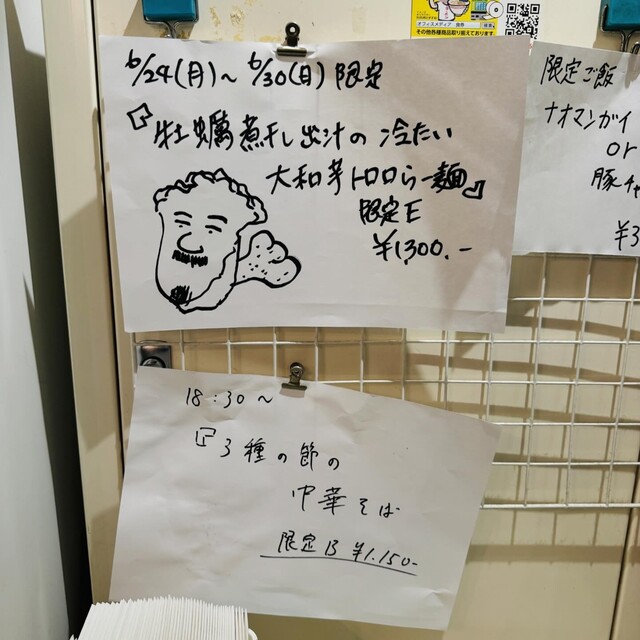 オフィスメディア
その他各種商品取り揃えております。
6/24(月)～6/30(日)限定
『牡蠣煮干し出汁の冷たい
大和芋トロロらー麺』
限定E
¥1,300.-
限定ご飯
ナオマンガイ
or
豚チャ
¥3
18:30～
『3種の節の
中華そば
限定B ¥1.150-